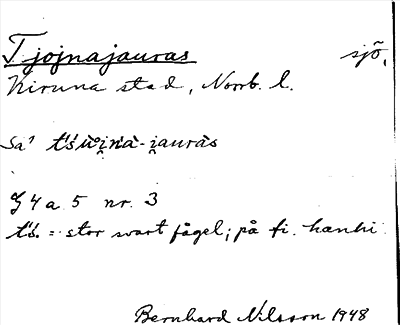 Tjojnajauras sjö,
Kiruna stad, Norrb. l.
Sa' t's'u̯o̯i̯n'à-i̯auràs
J 4 a 5 nr. 3
t's'. = stor svart fågel; på fi. hanhi.
Bernhard Nilsson 1948